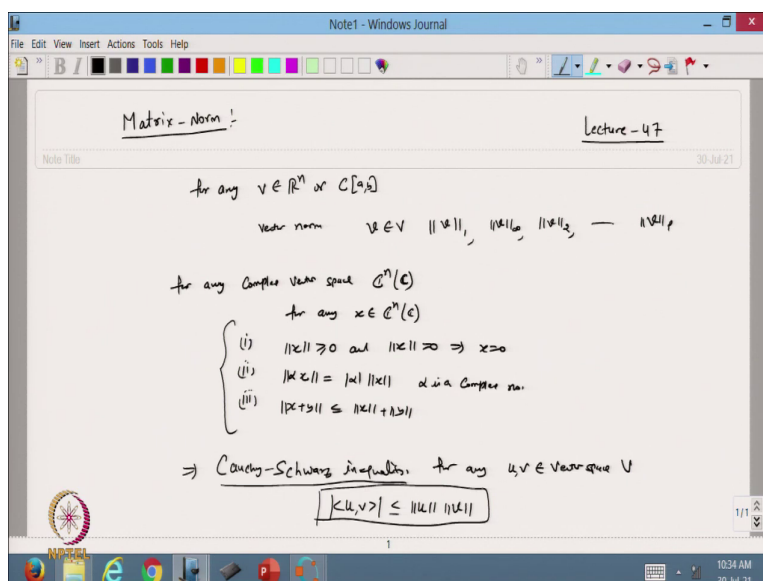 Note1 - Windows Journal
File Edit View Insert Actions Tools Help
Matrix-Norm:-
Lecture-47
Note Title
30-Jul-21
for any v ∈ ℝⁿ or C[a,b]
vector norm v ∈ V ||v||₁, ||v||∞, ||v||₂, — ||v||ₚ
for any Complex vector space ℂⁿ(ℂ)
for any x ∈ ℂⁿ(ℂ)
(i) ||x|| ≥ 0 and ||x|| = 0 ⇒ x=0
(ii) ||αx|| = |α| ||x|| α is a Complex no.
(iii) ||x+y|| ≤ ||x|| + ||y||
⇒ Cauchy-Schwarz inequality. for any u,v ∈ Vector space V
|<u,v>| ≤ ||u|| ||v||
1/1
NPTEL
1
10:34 AM
30-Jul-21